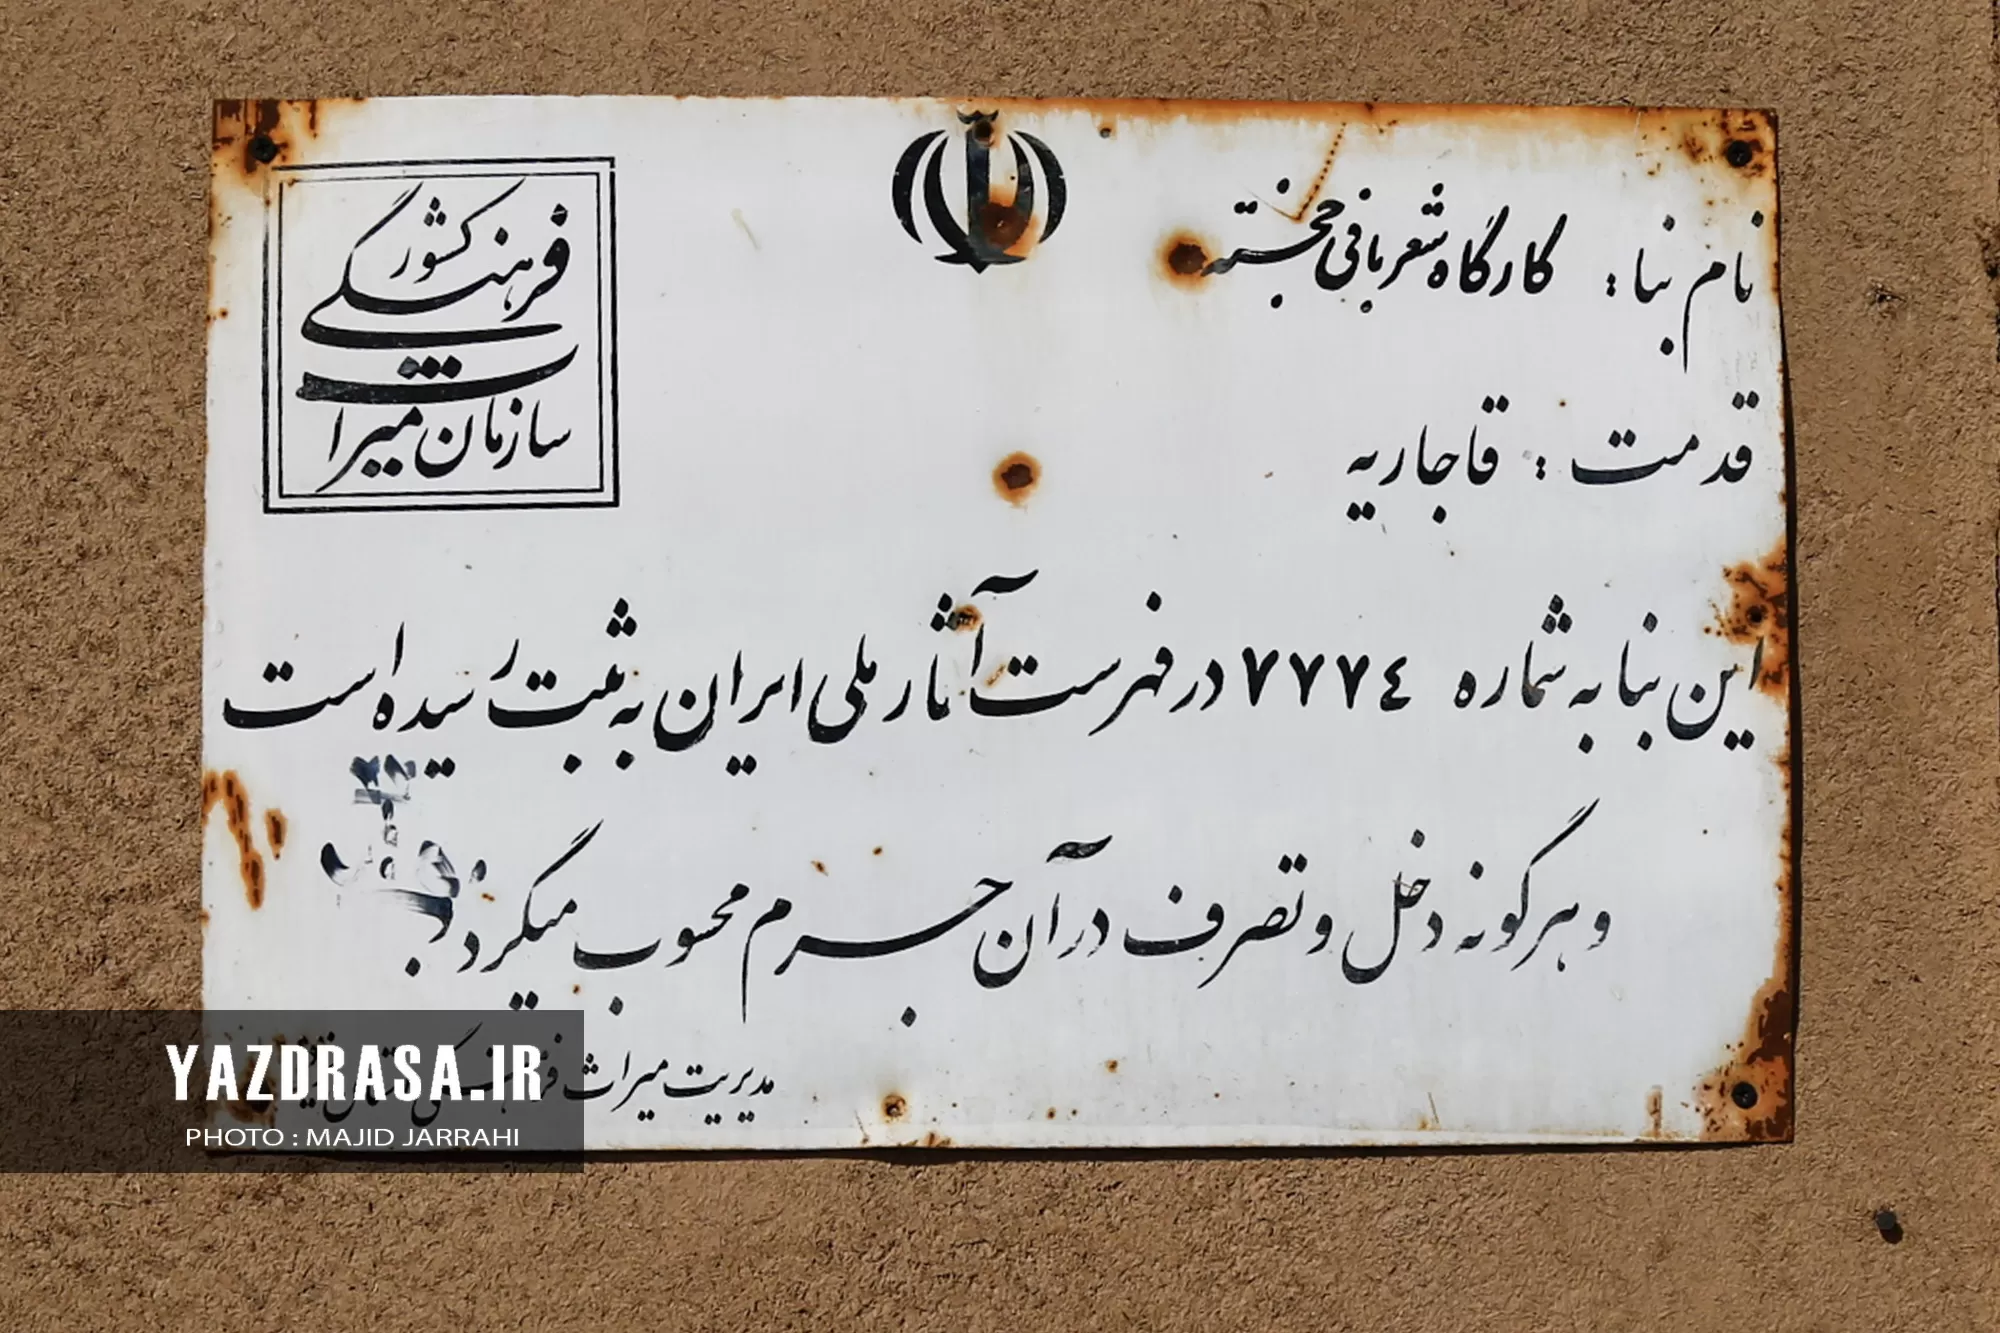 نام بنا : کارگاه شعربافی خجسته
قدمت : قاجاریه
این بنا به شماره ۷۷۷٤ در فهرست آثار ملی ایران به ثبت رسیده است
و هرگونه دخل و تصرف در آن جرم محسوب میگردد.
مدیریت میراث فرهنگی استان یزد
سازمان میراث
فرهنگی
کشور
YAZDRASA.IR
PHOTO : MAJID JARRAHI